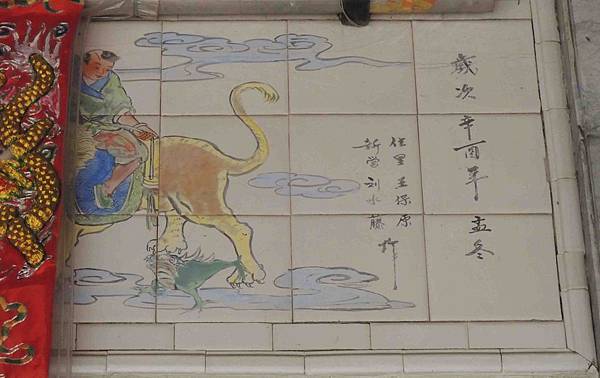 歲次辛酉年孟冬
佳里王保原
新営刘水藤作